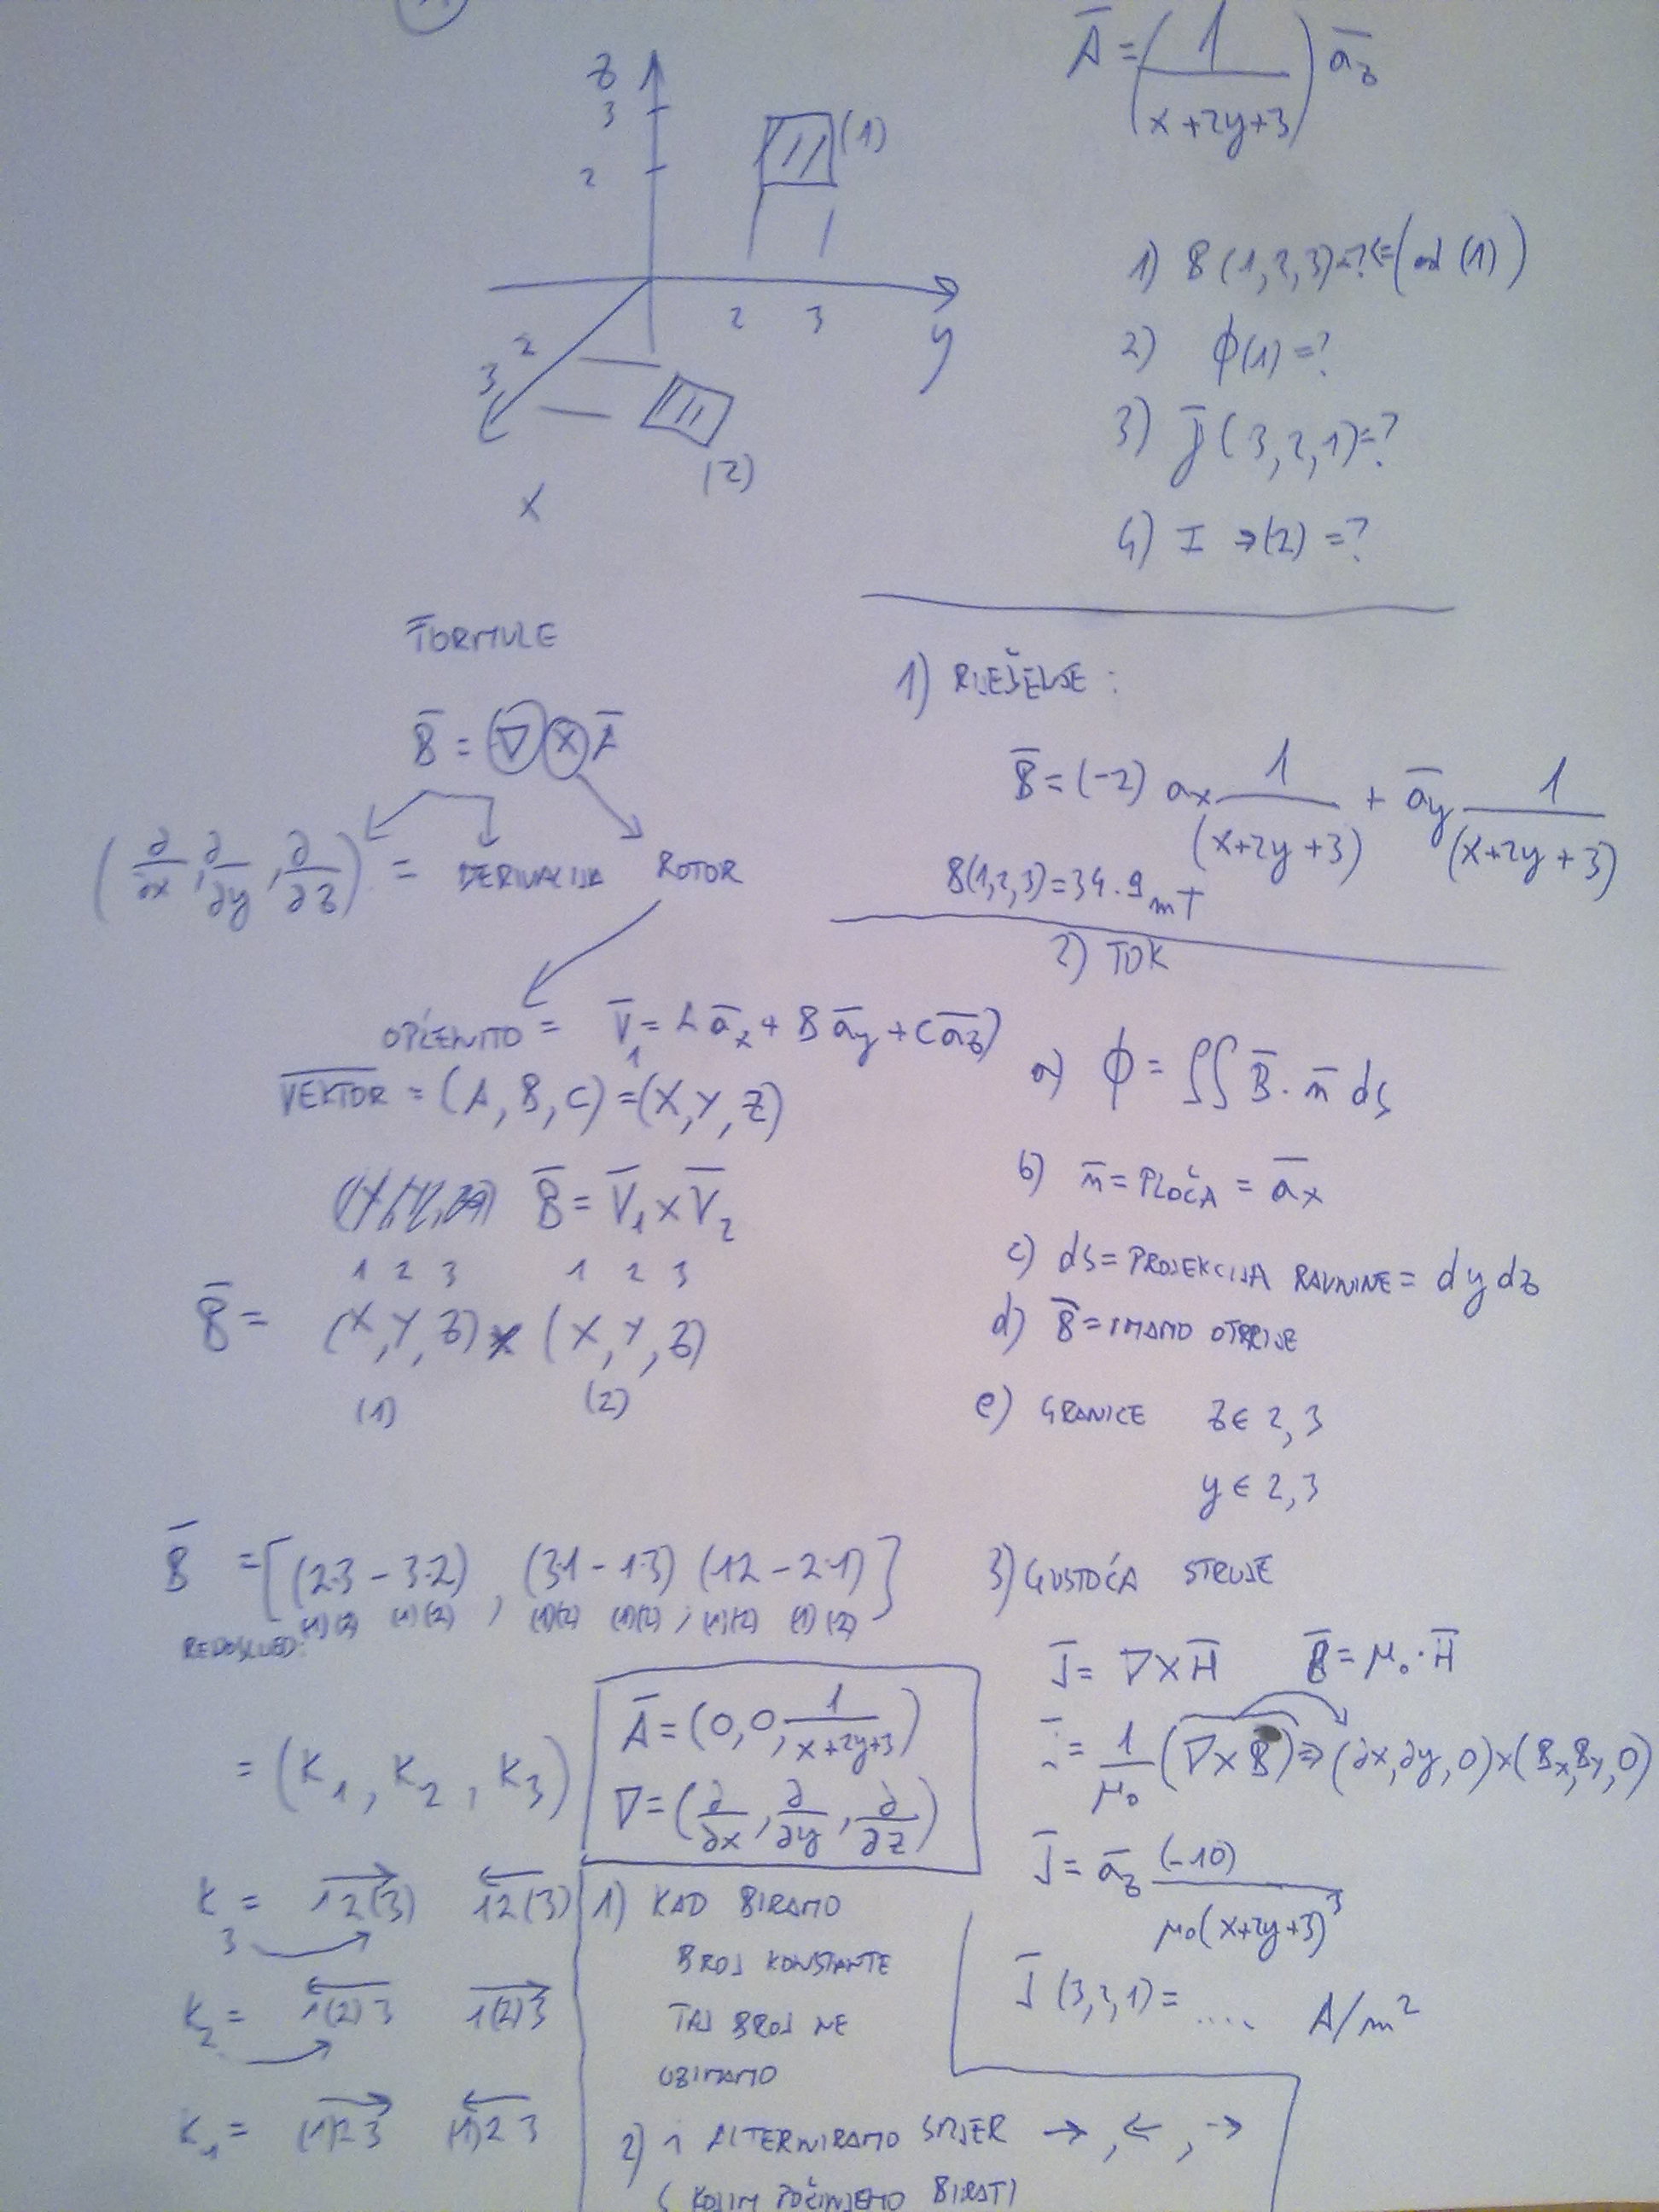 z
3
2
(1)
2 3
y
2
3
x
(2)
Ā = (1/(x+2y+3)) ā_z
1) B(1,2,3)=? ⇐ (od (1))
2) ϕ(1)=?
3) J̄(3,2,1)=?
4) I ⇒(2) =?
FORMULE
B̄ = ∇ × Ā
(∂/∂x, ∂/∂y, ∂/∂z) = DERIVACIJA ROTOR
OPĆENITO = V̄₁ = A ā_x + B ā_y + C ā_z)
VEKTOR = (A, B, C) = (X, Y, Z)
B̄ = V̄₁ × V̄₂
1 2 3 1 2 3
B̄ = (X, Y, Z) × (X, Y, Z)
(1) (2)
B̄ = [(2·3 − 3·2), (3·1 − 1·3) (1·2 − 2·1)]
(1)(2) (1)(2), (1)(2) (1)(2), (1)(2) (1)(2)
REDOSLIJED:
= (K₁, K₂, K₃)
K₃ = 12(3) 12(3)
K₂ = 1(2)3 1(2)3
K₁ = (1)23 (1)23
Ā = (0, 0, 1/(x+2y+3))
∇ = (∂/∂x, ∂/∂y, ∂/∂z)
1) KAD BIRAMO
BROJ KONSTANTE
TAJ BROJ NE
UZIMAMO
2) i ALTERNIRAMO SMJER →, ←, →
( KOJIM POČINJEMO BIRATI
1) RJEŠENJE :
B̄ = (−2) a_x 1/(x+2y+3) + ā_y 1/(x+2y+3)
B(1,2,3) = 34.9 mT
2) TOK
a) ϕ = ∬ B̄ · n̄ ds
b) n̄ = PLOČA = ā_x
c) ds = PROJEKCIJA RAVNINE = dy dz
d) B̄ = IMAMO OTPRIJE
e) GRANICE z ∈ 2, 3
y ∈ 2, 3
3) GUSTOĆA STRUJE
J̄ = ∇ × H̄ B̄ = μ₀ · H̄
= 1/μ₀ (∇ × B̄) ⇒ (∂x, ∂y, 0) × (Bx, By, 0)
J̄ = ā_z (−10)/(μ₀(x+2y+3)³)
J̄(3,2,1) = .... A/m²